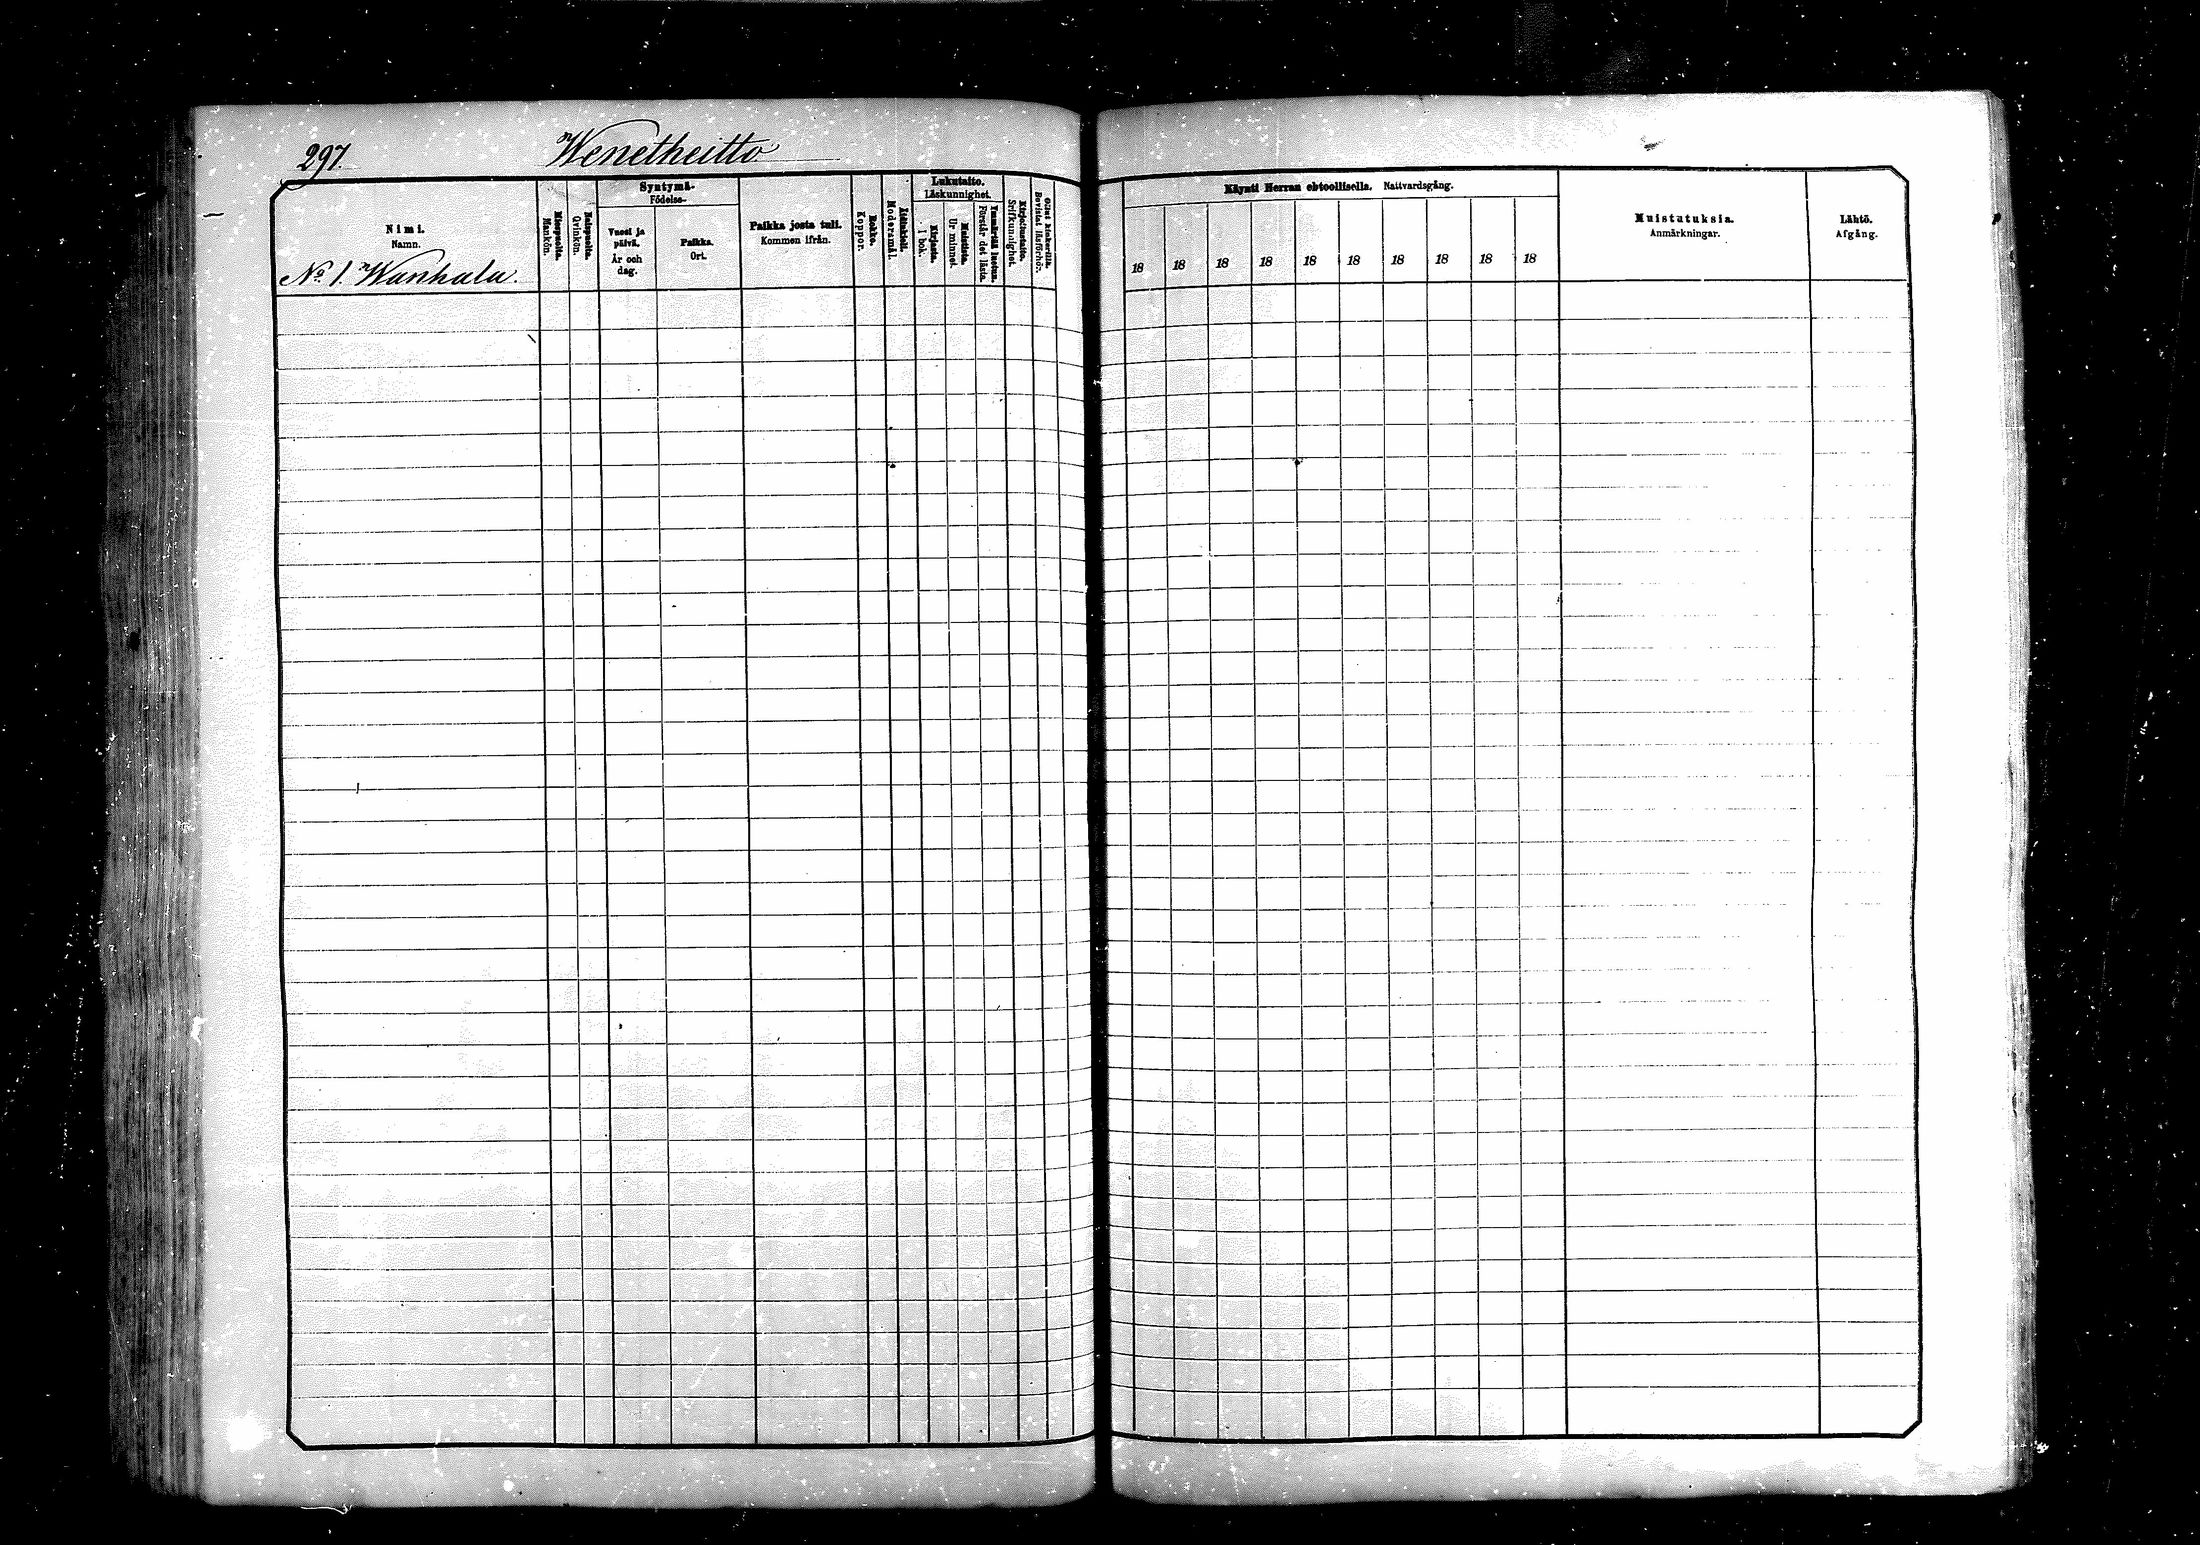 297. Wenetheitto
Nimi.
Namn.
No 1. Wanhala.
Miespuolia.
Mankön.
Vaimopuolia.
Qvinkön.
Syntymä-
Födelse-
Vuosi ja
päivä.
År och
dag.
Paikka.
Ort.
Paikka josta tuli.
Kommen ifrån.
Rokko.
Koppor.
Äidinkieli.
Modersmål.
Lukutaito.
Läskunnighet.
Kirjasta.
I bok.
Muistista.
Ur minnet.
Ymmärtää luetun.
Förstår det lästa.
Kirjoitustaito.
Srifkunnighet.
Ollut kinkerillä.
Bevistat läsförhör.
Käynti Herran ehtoollisella. Nattvardsgång.
18 18 18 18 18 18 18 18 18 18
Muistutuksia.
Anmärkningar.
Lähtö.
Afgång.